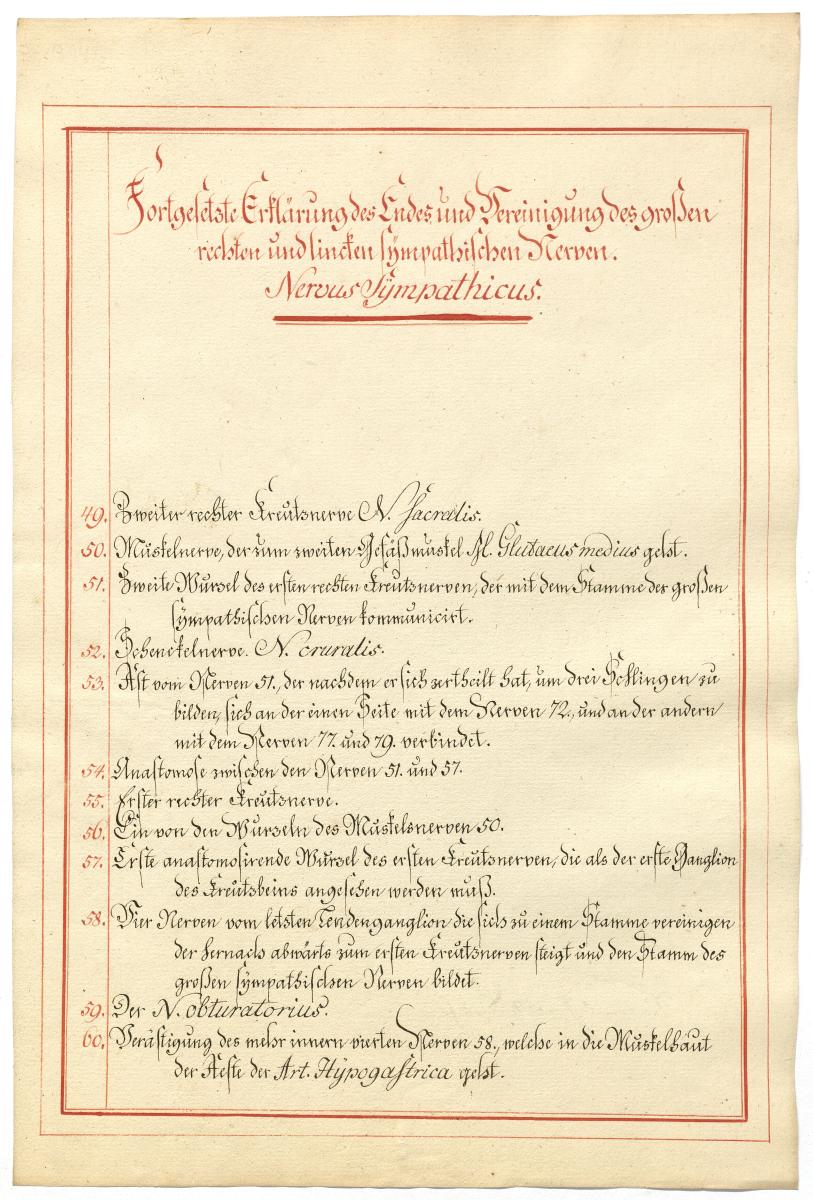 Fortgesetzte Erklärung des Endes und Vereinigung des großen
rechten und lincken sympathischen Nerven.
Nervus Sympathicus.
49. Zweiter rechter Kreutznerve N. sacralis.
50. Muskelnerve, der zum zweiten Gesäßmuskel M. Glutaeus medius geht.
51. Zweite Wurzel des ersten rechten Kreutznerven, der mit dem Stamme der großen
sympathischen Nerven kommunicirt.
52. Schenckelnerve. N. cruralis.
53. Ast vom Nerven 51., der nachdem er sich zertheilt hat, um drei Schlingen zu
bilden, sich an der einen Seite mit dem Nerven 72., und an der andern
mit dem Nerven 77. und 79. verbindet.
54. Anastomose zwischen den Nerven 51. und 57.
55. Erster rechter Kreutznerve.
56. Ein von den Wurzeln des Muskelsnerven 50.
57. Erste anastomosirende Wurzel des ersten Kreutznerven, die als der erste Ganglion
des Kreutzbeins angesehen werden muß.
58. Vier Nerven vom letzten Lendenganglion die sich zu einem Stamme vereinigen
der hernach abwärts zum ersten Kreutznerven steigt und den Stamm des
großen sympathischen Nerven bildet.
59. Der N. obturatorius.
60. Verästigung des mehr innern vierten Nerven 58., welche in die Muskelhaut
der Aeste der Art. Hypogastrica geht.